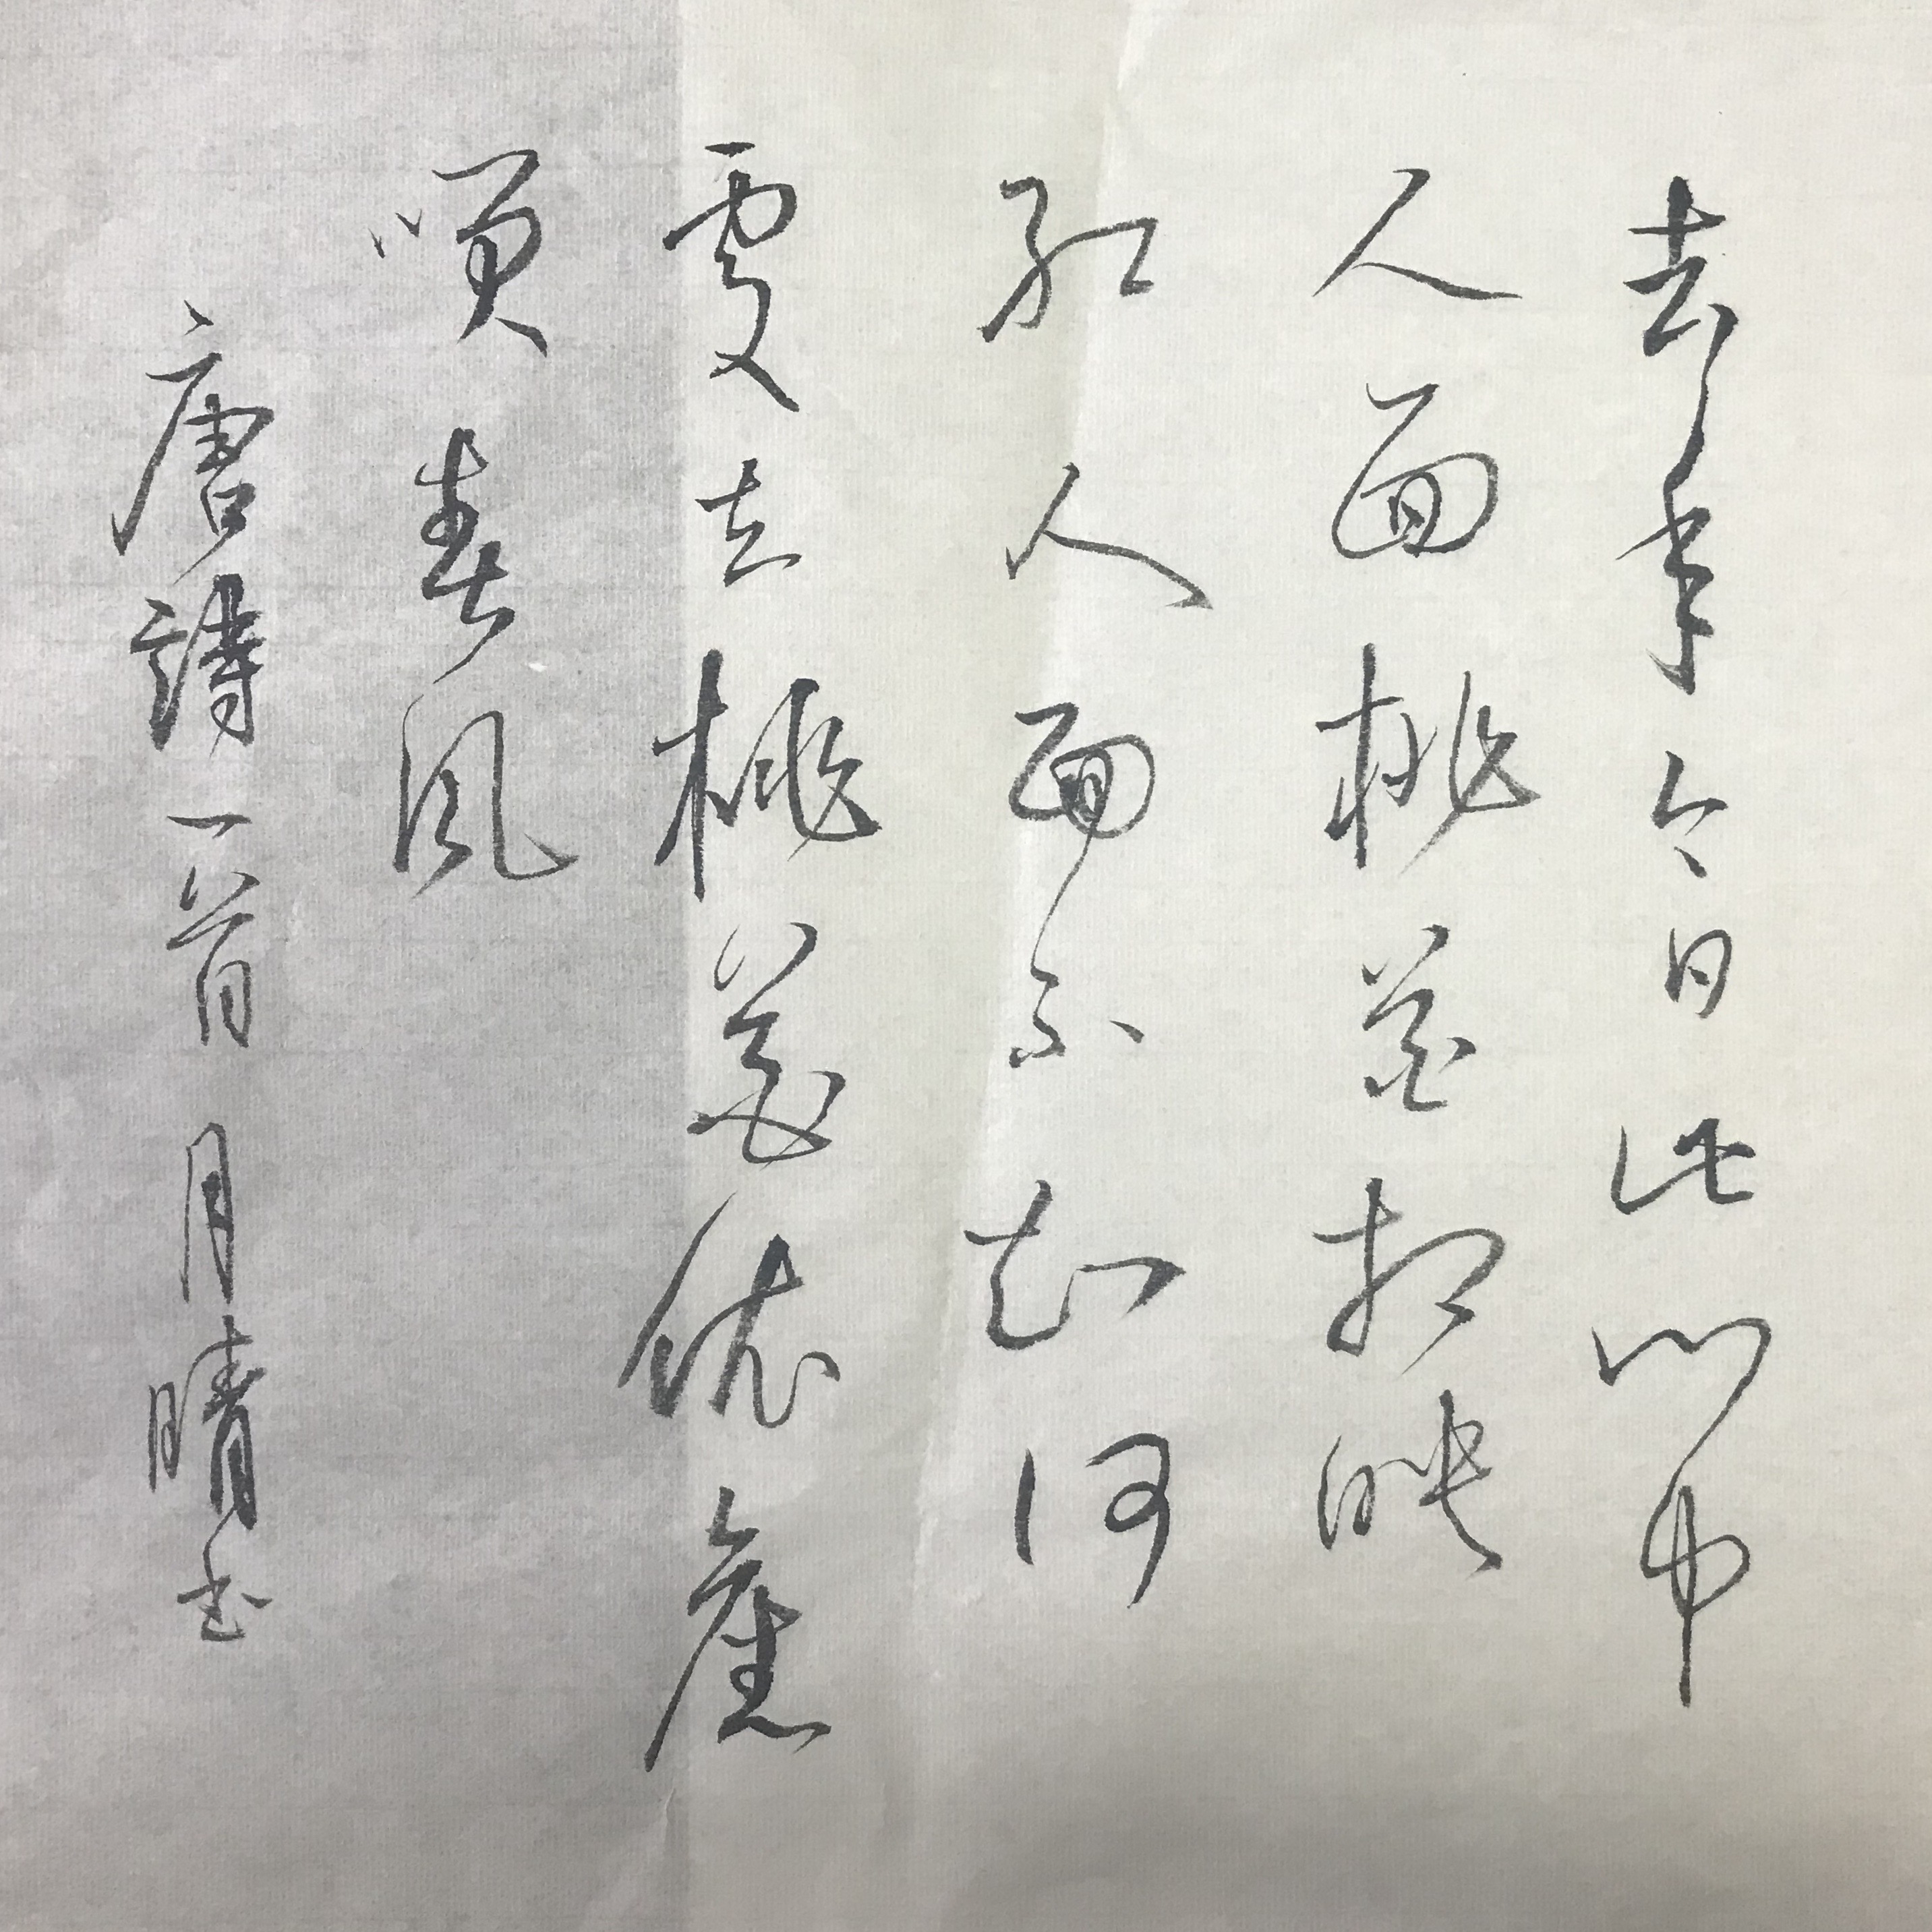 去年今日此門中
人面桃花相映
紅人面不知何
處去桃花依舊
笑春風
唐詩一首 月晴書